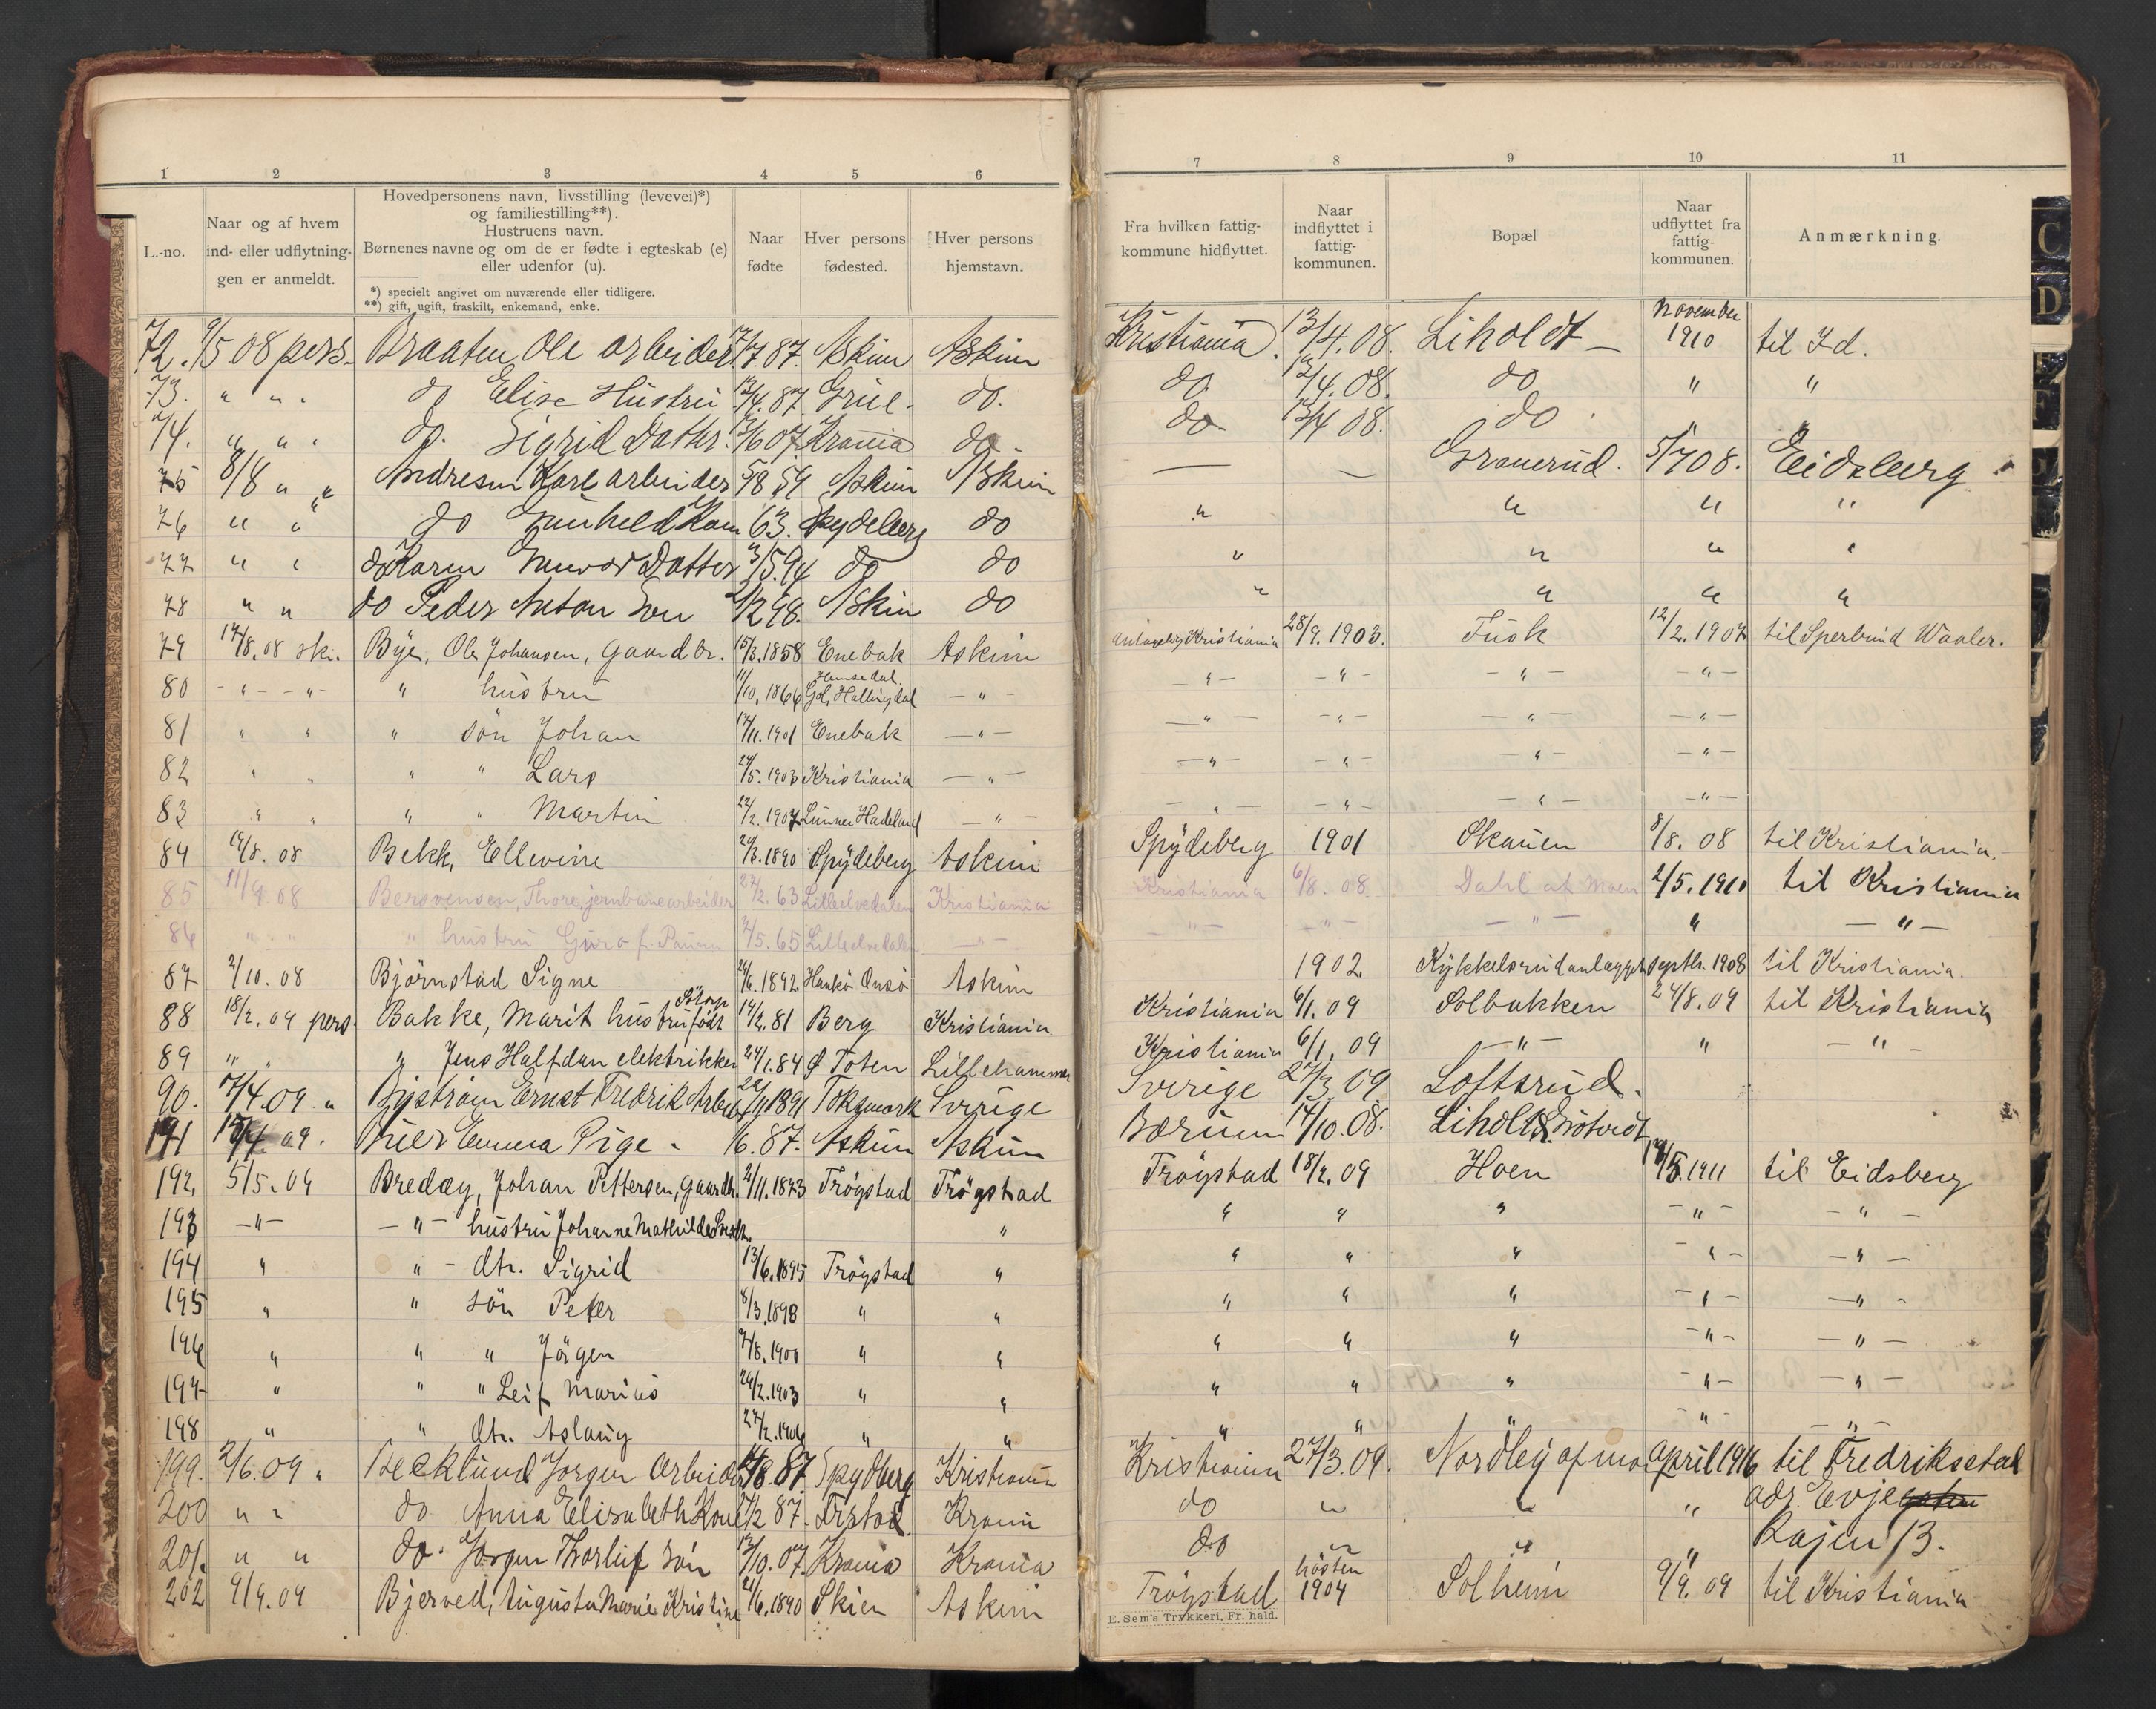 1 2 3 4 5 6 7 8 9 10 11
L.-no.
Naar og af hvem
ind- eller udflytnin-
gen er anmeldt.
Hovedpersonens navn, livsstilling (levevei)*)
og familiestilling**).
Hustruens navn.
Børnenes navne og om de er fødte i egteskab (e)
eller udenfor (u).
*) specielt angivet om nuværende eller tidligere.
**) gift, ugift, fraskilt, enkemand, enke.
Naar
fødte
Hver persons
fødested.
Hver persons
hjemstavn.
Fra hvilken fattig-
kommune hidflyttet.
Naar
indflyttet i
fattig-
kommunen.
Bopæl
Naar
udflyttet fra
fattig-
kommunen.
Anmærkning.
72. 9/5 08 pers. Braaten Ole arbeider 7.87. Askim Askim Kristiania. 13/4.08. Liholdt — November 1910 til Id.
73. " " " do Elise Hustru 13/4.87. Grue. do. do. 13/4.08. do " "
74. " " " do. Sigrid Dattr. 13/6 07 Krania do. do 13/4 08. do "
75 8/8 " " Andresen Karl arbeider 5/8 59 Askim Askim — — Granerud. 5/7 08. Eidsberg
76 " " do Gunhild Kone 63. Spydeberg do " " " "
77 " " do Karen Gunvor Datter 3/5.94 do do " " " "
78 " " do Peder Anton Søn 2/2 98. Askim do " " " "
79 14/8.08 sk. Bye, Ole Johansen, gaardbr. 15/3.1858 Enebak Askim antagelig Kristiania 28/9.1903. Fusk 12/2.1907 til Sperbund Waaler.
80 - " - - " - " hustru 11/10.1866 Hemsedal. Gol, Hallingdal — " — — " — - " - - " - - " -
81 " " " søn Johan 17/11.1901 Enebak — " — — " — - " - — " — - " -
82 " " " " Lars 29/5.1903 Kristiania — " — — " — - " - — " — - " -
83 " " " " Martin 22/2.1907 Lunner Hadeland — " — — " — - " - — " — - " -
84 19/8.08 Bekk, Ellevine 20/3.1890 Spydeberg Askim Spydeberg 1901 Skauen 8/8.08 til Kristiania.
85 11/9.08 Bersvensen, Thore, jernbanearbeider 27/2.63 Lilleelvedalen Kristiania Kristiania 6/8.08. Dahl af Moen 2/5.1910 til Kristiania
86 " " " " hustru Guro f. 2/5.65 Lilleelvedalen — " — — " — - " - — " — " — " —
87 2/10.08 Björnstad Signe 24/6.1892 Hankø Onsø Askim 1902 Kykkelsrudanlægget septbr. 1908 til Kristiania.
88 18/2.09 pers. Bakke, Marit hustru født 14/2.81 Berg Kristiania Kristiania 6/1.09 Solbakken 24/8.09 til Kristiania
89 " " " Jens Halfdan elektrikker 24/1.84 Ø Toten Lillehammer Kristiania 6/1.09 — " — " — " —
90. 7/4.09 " Byström Ernst Fredrik Arbeid 1891 Toksmark Sverige Sverige 27/3.09 Loftsrud.
191 15/4 09. Emma Pige. 6.87. Askim Askim Bærum 14/10.08. Liholt
192. 5/5.09 Bredæg, Johan Pettersen, gaardbr. 2/11.1873 Trögstad Trögstad Trögstad 18/2.09 Hoen 14/5.1911 til Eidsberg
193 — " — — " — hustru Johanne Mathilde " " " " - " - - " -
194 " " - dtr. Sigrid 13/6.1895 Trögstad " " " " - " - — " —
195 " " søn Peter 8/3.1898 " " " " " - " - — " -
196 " " " Jörgen 7/8.1900 " " " " " - " - — " —
197 " " " Leif Marius 26/2.1903 " " " " " - " - — " —
198 " " dtr. Aslaug 27/2.1906 " " " " - " - - " -
199. 2/6.09 " Becklund Jørgen Arbeider 14/8.87. Spydberg Kristiania Kristiania 27/3.09. Nordley af mo April 1916 til Fredriksstad
200 " " do Anna Elisabeth Kone 7/2 87. Frstad. Krania do " " " adr. Evje
201. " " do. Jørgen Thorleif søn 13/10.07. Krania Krania do " " " Rajen 13.
202 9/9.09 Bjerved, Augusta Marie Kristine 21/6.1890 Skien Askim Trögstad hösten 1904 Solheim 9/9.09 til Kristiania
E. Sem's Trykkeri, Fr. hald.
C
D